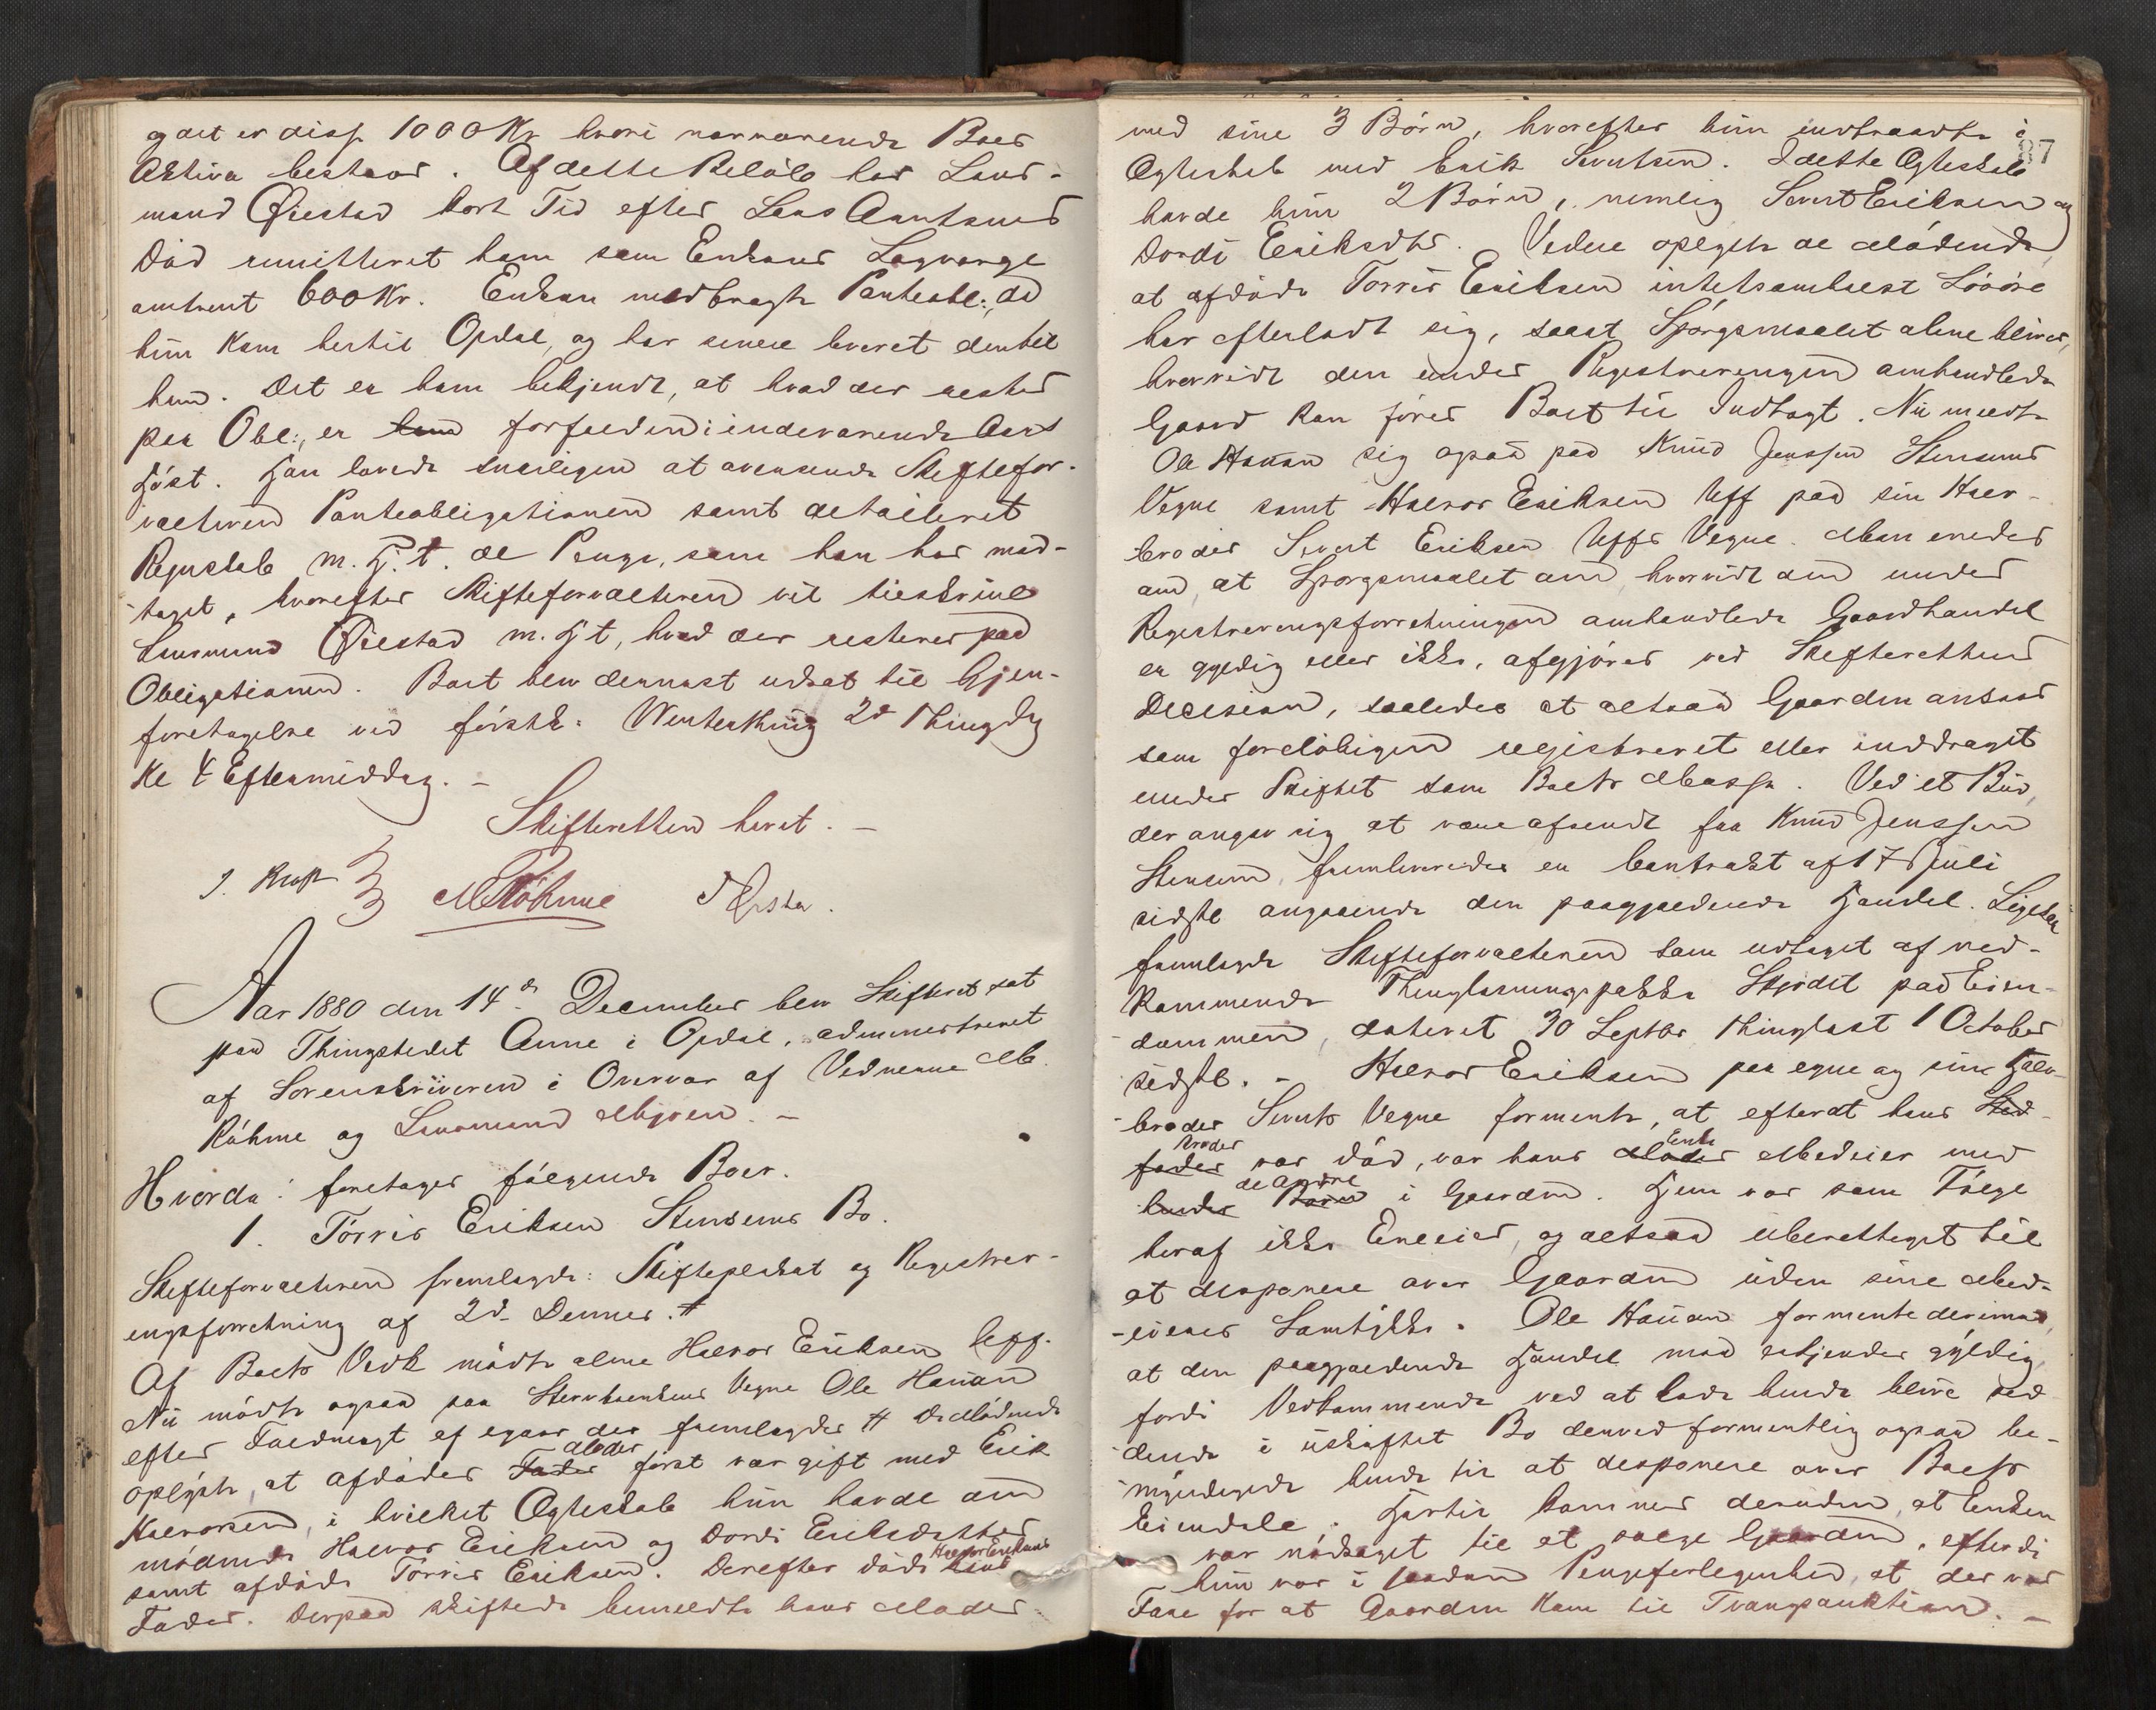 og det er disse 1000 Kr hvori nærværende Boes
Aktiva bestaar. Af dette Beløb har Lens-
mand Øiestad kort Tid efter Lars Aantsens
Død remitteret ham som Enkens Lagværge
omtrent 600 Kr. Enken medbragte Panteobl:, da
hun kom hertil Opdal, og har senere leveret den til
ham. Det er ham bekjendt, at hvad der rester
paa Obl:, er forfalden i indeværende Aars
Høst. Han lovede snarligen at oversende Skiftefor-
valteren Panteobligationen samt detaileret
Regnskab m. H. t. de Penge, som han har mod-
taget, hvorefter Skifteforvalteren vil tilskrive
Lensmand Øiestad m. H t, hvad der resterer paa
Obligationen. Boet blev dernæst udsat til Gjen-
foretagelse ved førstk. Vinterthing 2d Thingdag
Kl 4 Eftermiddag. –
Skifteretten hævet. –
J. Kraft M Røhme
Aar 1880 den 14de December blev Skifteret sat
paa Thingstedet Aune i Opdal, administreret
af Sorenskriveren i Overvær af Vidnerne M.
Røhme og Lensmand Mjøen. –
Hvorda: foretages følgende Boer.
1. Tørris Eriksen Stensems Bo.
Skifteforvalteren fremlagde: Skifteplakat og Registrer-
ingsforretning af 2d Dennes. #
Af Boets Vedk mødte alene Halvor Eriksen Uff.
Nu mødte ogsaa paa Stervboenkens Vegne Ole Hauan
efter Fuldmagt af egaar der fremlagdes # De Mødende
oplyste, at afdødes Fader Moder først var gift med Erik
Halvorsen, i hvilket Ægteskab hun havde den
mødende Halvor Eriksen og Dordi Eriksdatter
samt afdøde Tørris Eriksen. Derefter døde Halvor Eriksens
Fader. Derpaa skiftede bemeldte hans Moder
87
med sine 3 Børn, hvorefter hun indtraadte i
Ægteskab med Erik Sivertsen. I dette Ægteskab
havde hun 2 Børn, nemlig Sivert Eriksen og
Dordi Eriksdtr. Videre oplyste de Mødende,
at afdøde Tørris Eriksen intetsomhelst Løsøre
har efterladt sig, saaat Spørgsmaalet alene bliver,
hvorvidt den under Registreringen omhandlede
Gaard kan føres Boet til Indtægt. Nu meldte
Ole Hauan sig ogsaa paa Knud Jenssen Stensems
Vegne samt Halvor Eriksen Uff paa sin Halv-
broder Sivert Eriksen Uffs Vegne. Man enedes
om, at Spørgsmaalet om, hvorvidt den under
Registreringsforretningen omhandlede Gaardhandel
er gyldig eller ikke, afgjøres ved Skifterettens
Decision, saaledes at altsaa Gaarden ansees
som foreløbigen registreret eller inddraget
under Skiftet som Boets Masse. Ved et Bud,
der angav sig at være afsendt fra Knud Jenssen
Stensem, fremleveredes en Contrakt af 17 Juli
sidstl. angaaende den paagjældende Handel. Ligesaa
fremlagde Skifteforvalteren som udtaget af ved-
kommende Thinglæsningspakke Skjødet paa Eien-
dommen, dateret 30 Septbr thinglæst 1 October
sidstl. – Halvor Eriksen paa egne og sin Halv-
broder Siverts Vegne formente, at efterat hans Sted-
fader Broder var død, var hans Moder Enke Medeier med
hendes Børn de Andre i Gaarden. Hun var som Følge
heraf ikke Eneeier, og altsaa uberettiget til
at disponere over Gaarden uden sine Med-
eieres Samtykke. Ole Hauan formente derimod,
at den paagjældende Handel maa erkjendes gyldig,
fordi Vedkommende ved at lade hende blive sid-
dende i uskiftet Bo derved formentlig ogsaa be-
myndigede hende til at disponere over Boets
Eiendele. Hertil kommer desuden, at Enken
var nødsaget til at sælge Gaarden, efterdi
hun var i saadan Pengeforlegenhed, at der var
Fare for at Gaarden kom til Tvangsauktion. –